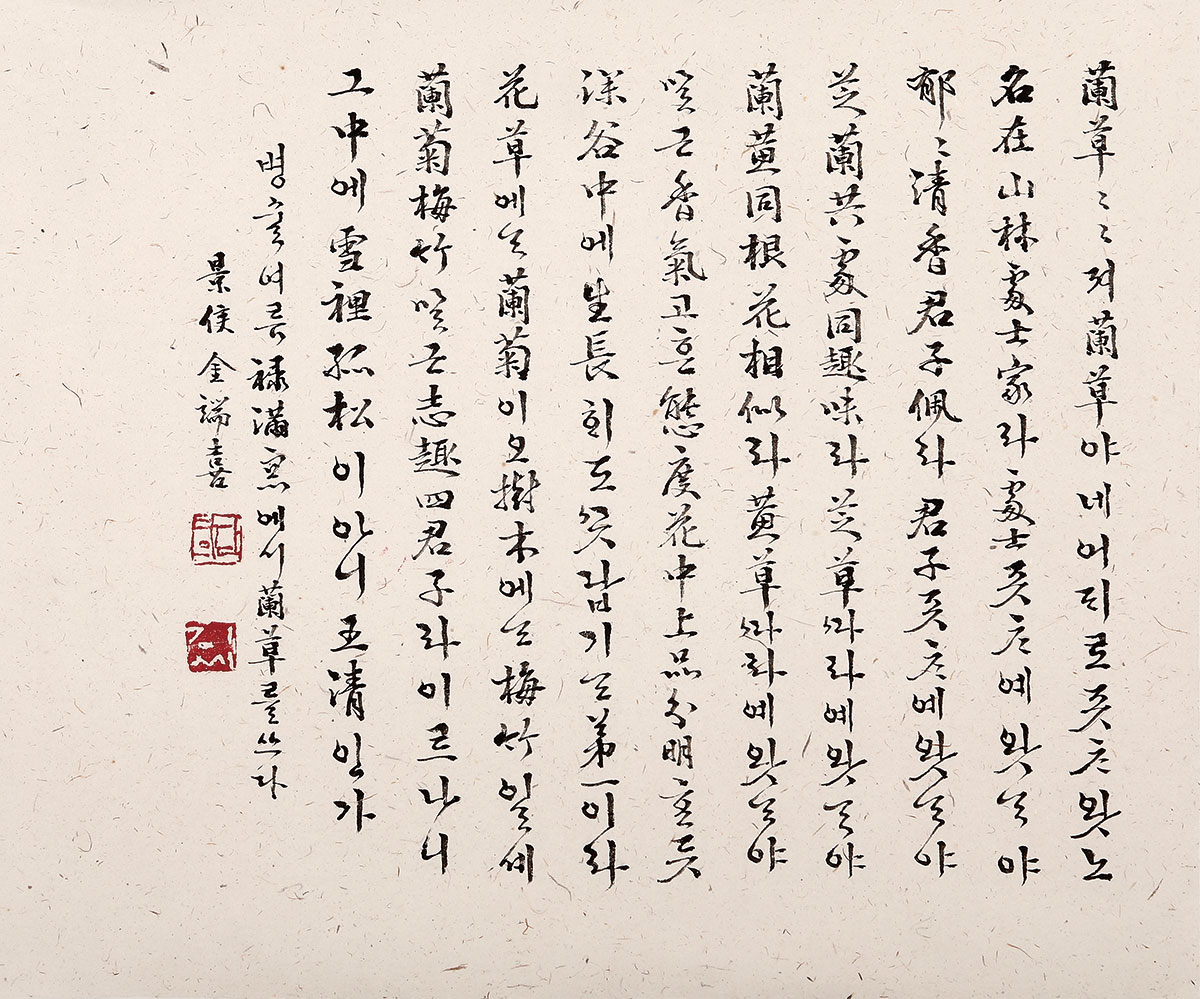 蘭草〻〻져蘭草야네어디로죳ᄎᆞ왓노
名在山林處士家라處士죳ᄎᆞ예왓ᄂᆞ야
郁〻清香君子佩라君子죳ᄎᆞ예왓ᄂᆞ야
芝蘭共處同趣味라芝草ᄯᅡ라예왓ᄂᆞ야
蘭蕙同根花相似라蕙草ᄯᅡ라예왓ᄂᆞ야
ᄆᆞᆰ근香氣고흔態度花中上品分明
深谷中에生長ᄒᆡ도ᄭᅩᆺ답기ᄂᆞᆫ第一이라
花草에ᄂᆞᆫ蘭菊이오樹木에ᄂᆞᆫ梅竹일셰
蘭菊梅竹ᄆᆞᆰ근志趣四君子라이르나니
그中에雪裡孤松이안니王清인가
병술여름祿滿窓에서蘭草를쓰다
景侯 金端喜